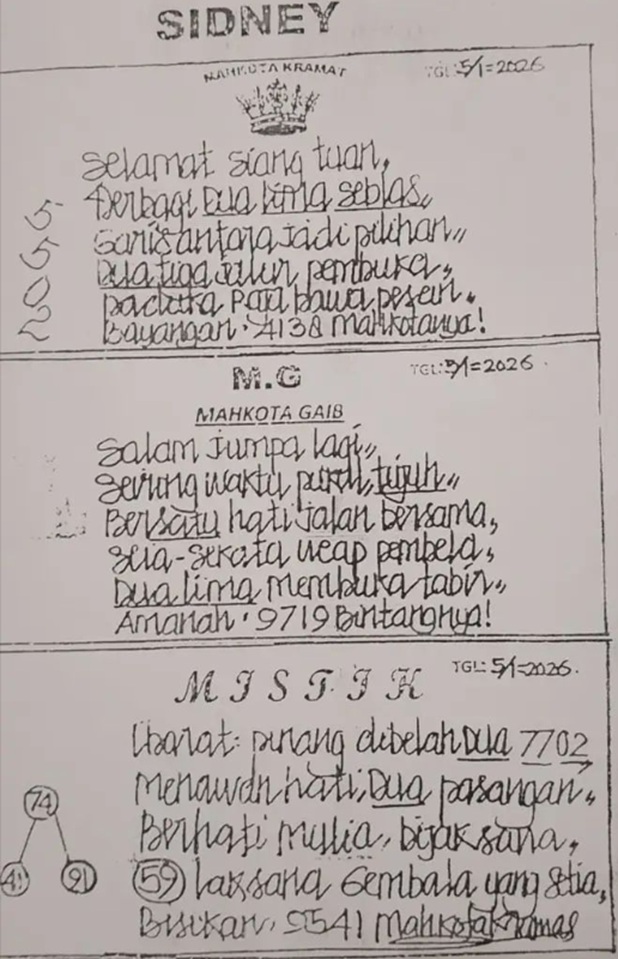 SIDNEY
MAHKOTA KRAMAT
TGL: 5/1=2026
Selamat siang tuan,
Berbagi Dua lima seblas,,
Garis antara jadi pilihan,,
Dua tiga jalur pembuka,
paduka Raja bawa pesan,
Bayangan, 4138 Mahkotanya!
5
5
0
2
M.G
TGL: 5/1=2026
MAHKOTA GAIB
Salam Jumpa lagi,,
Seiring waktu pukul, tujuh,,
Bersatu hati jalan bersama,
Seia-sekata ucap pembela,
Dua lima membuka tabir,,
Amanah, 9719 Bintangnya!
MISTIK
TGL: 5/1=2026.
Ibarat: pinang dibelah Dua 7702
Menawan hati, Dua pasangan,
Berhati mulia, bijaksana,
59 laksana Gembala yang setia,
Bisikan, 9541 Mahkota
74
41 91